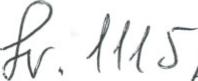 fr. 1115,